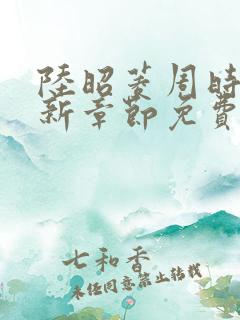 陸昭菱周時
新章節免費
七和香
未任同意禁止转载